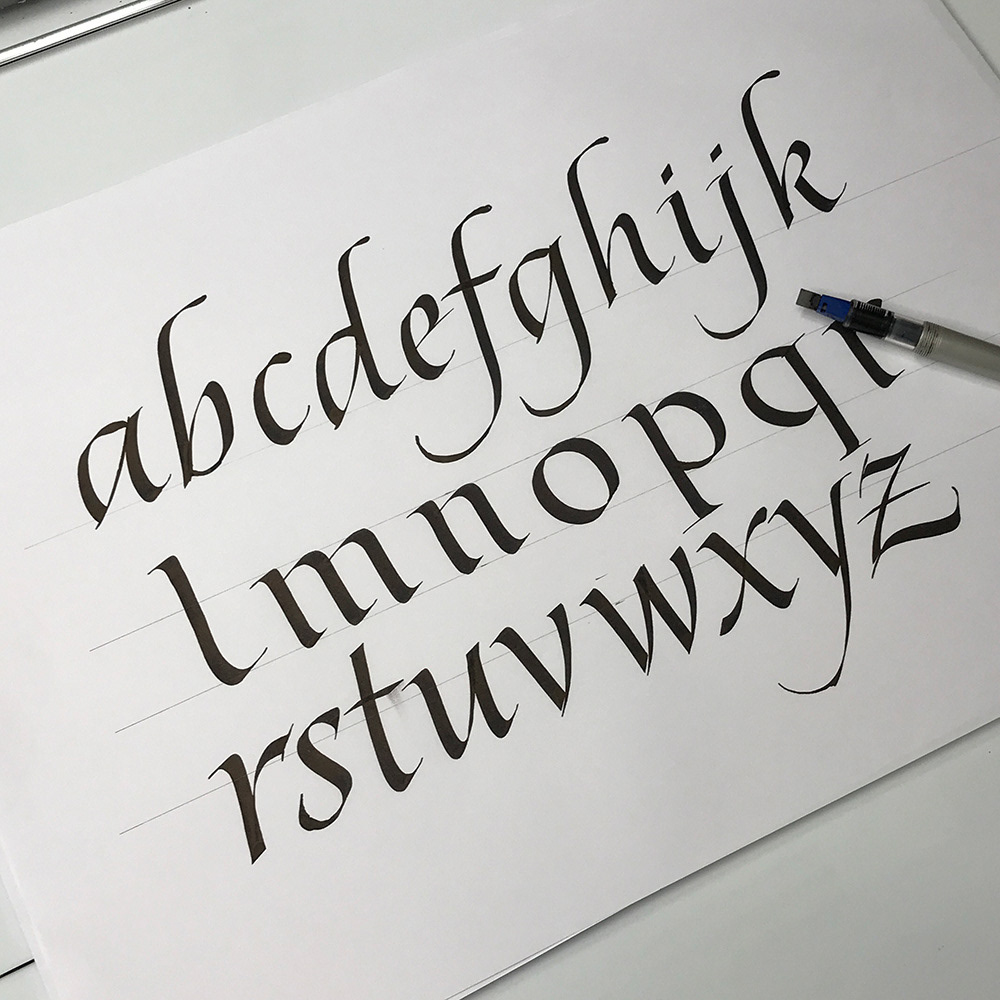 abcdefghijk
lmnopq
rstuvwxyz